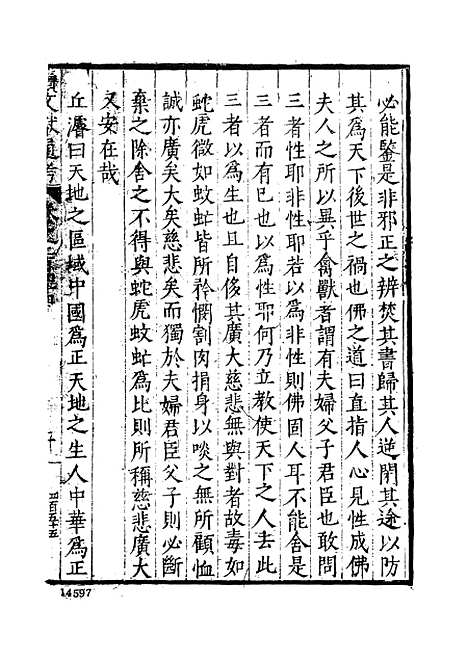 必能鑒是非邪正之辨焚其書歸其人逆閉其途以防
其爲天下後世之禍也佛之道曰直指人心見性成佛
夫人之所以異乎禽獸者謂有夫婦父子君臣也敢問
三者性耶非性耶若以爲非性則佛固人耳不能舍是
三者而有已也以爲性耶何乃立教使天下之人去此
三者以爲生也且自侈其廣大慈悲無與對者故毒如
蛇虎微如蚊虻皆所矜憫割肉捐身以啖之無所顧恤
誠亦廣矣大矣慈悲矣而獨於夫婦君臣父子則必斷
棄之除舍之不得與蛇虎蚊虻爲比則所稱慈悲廣大
又安在哉
丘濬曰天地之區域中國爲正天地之生人中華爲正
文獻通考
14597